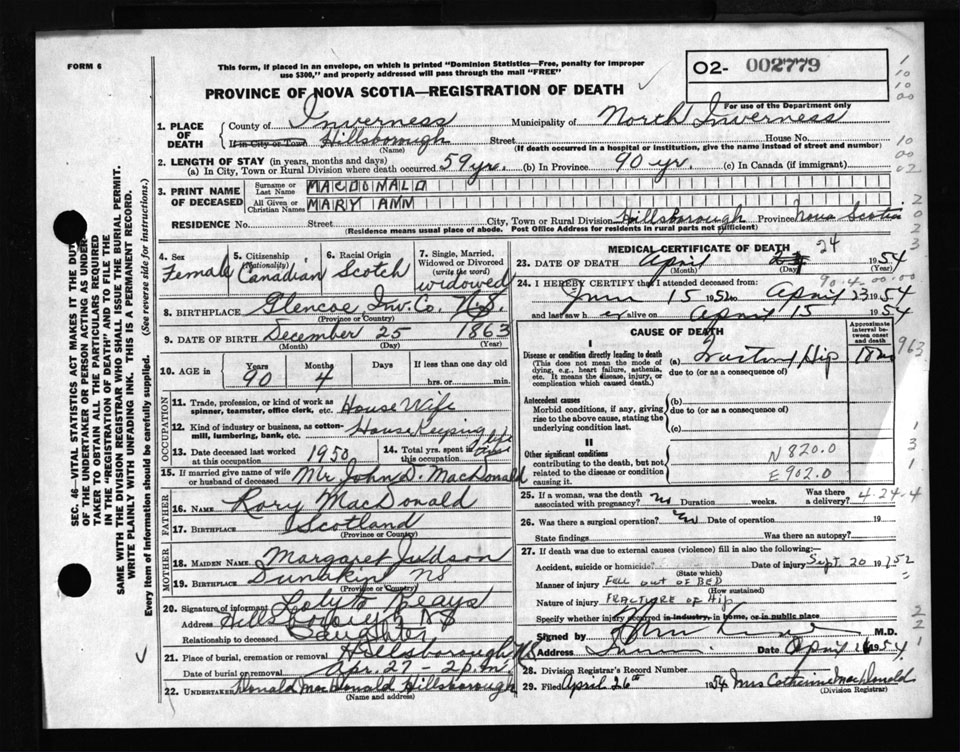 FORM 6
This form, if placed in an envelope, on which is printed "Dominion Statistics—Free, penalty for improper
use $300," and properly addressed will pass through the mail "FREE"
PROVINCE OF NOVA SCOTIA—REGISTRATION OF DEATH
02- 002779
For use of the Department only
1. PLACE OF DEATH
County of Inverness Municipality of North Inverness
If in City or Town Hillsborough Street House No.
(Name) (If death occurred in a hospital or institution, give the name instead of street and number)
2. LENGTH OF STAY (in years, months and days)
(a) In City, Town or Rural Division where death occurred 59 yr. (b) In Province 90 yr. (c) In Canada (if immigrant)
3. PRINT NAME OF DECEASED
Surname or Last Name MACDONALD
All Given or Christian Names MARY ANN
RESIDENCE No. Street City, Town or Rural Division Hillsborough Province Nova Scotia
(Residence means usual place of abode. Post Office Address for residents in rural parts not sufficient)
SEC. 46—VITAL STATISTICS ACT MAKES IT THE DUTY
OF THE UNDERTAKER OR PERSON ACTING AS UNDER-
TAKER TO OBTAIN ALL THE PARTICULARS REQUIRED
IN THE "REGISTRATION OF DEATH" AND TO FILE THE
SAME WITH THE DIVISION REGISTRAR WHO SHALL ISSUE THE BURIAL PERMIT.
WRITE PLAINLY WITH UNFADING INK. THIS IS A PERMANENT RECORD.
Every item of information should be carefully supplied. (See reverse side for instructions.)
4. Sex Female
5. Citizenship (Nationality) Canadian
6. Racial Origin Scotch
7. Single, Married, Widowed or Divorced (write the word) widowed
8. BIRTHPLACE Glencoe Inv. Co. N.S.
(Province or Country)
9. DATE OF BIRTH December 25 1863
(Month) (Day) (Year)
10. AGE in Years 90 Months 4 Days If less than one day old hrs. or min.
OCCUPATION
11. Trade, profession, or kind of work as spinner, teamster, office clerk, etc. House Wife
12. Kind of industry or business, as cotton-mill, lumbering, bank, etc. House Keeping
13. Date deceased last worked at this occupation 1950
14. Total yrs. spent in this occupation life time
15. If married give name of wife or husband of deceased Mr John D. MacDonald
FATHER
16. Name Rory MacDonald
17. BIRTHPLACE Scotland
(Province or Country)
MOTHER
18. MAIDEN NAME Margaret Judson
19. BIRTHPLACE Dunakin NS
(Province or Country)
20. Signature of informant
Address Hillsborough NS
Relationship to deceased Daughter
21. Place of burial, cremation or removal Hillsborough NS
Date of burial or removal Apr. 27 - 2 p.m.
22. UNDERTAKER Donald MacDonald Hillsborough
(Name and address)
MEDICAL CERTIFICATE OF DEATH
23. DATE OF DEATH April 24 1954
(Month) (Day) (Year)
24. I HEREBY CERTIFY that I attended deceased from:
15 1952 to April 23 1954
and last saw her alive on April 15 1954
CAUSE OF DEATH
Approximate interval between onset and death
I
Disease or condition directly leading to death
(This does not mean the mode of dying, e.g., heart failure, asthenia, etc. It means the disease, injury, or complication which caused death.)
(a) Hip
due to (or as a consequence of)
Antecedent causes
Morbid conditions, if any, giving rise to the above cause, stating the underlying condition last.
(b)
due to (or as a consequence of)
(c)
II
Other significant conditions contributing to the death, but not related to the disease or condition causing it.
N 820.0
E 902.0
25. If a woman, was the death associated with pregnancy? no Duration weeks. Was there a delivery? 4-24-4
26. Was there a surgical operation? no Date of operation 19
State findings Was there an autopsy?
27. If death was due to external causes (violence) fill in also the following:—
Accident, suicide or homicide? Date of injury Sept. 20 1952
(State which)
Manner of injury FELL OUT OF BED
(How sustained)
Nature of injury FRACTURE OF Hip
Specify whether injury occurred in industry, in home, or in public place
Signed by M.D.
Address Date April 26 1954
28. Division Registrar's Record Number
29. Filed April 26th 1954 Mrs Catherine MacDonald
(Division Registrar)